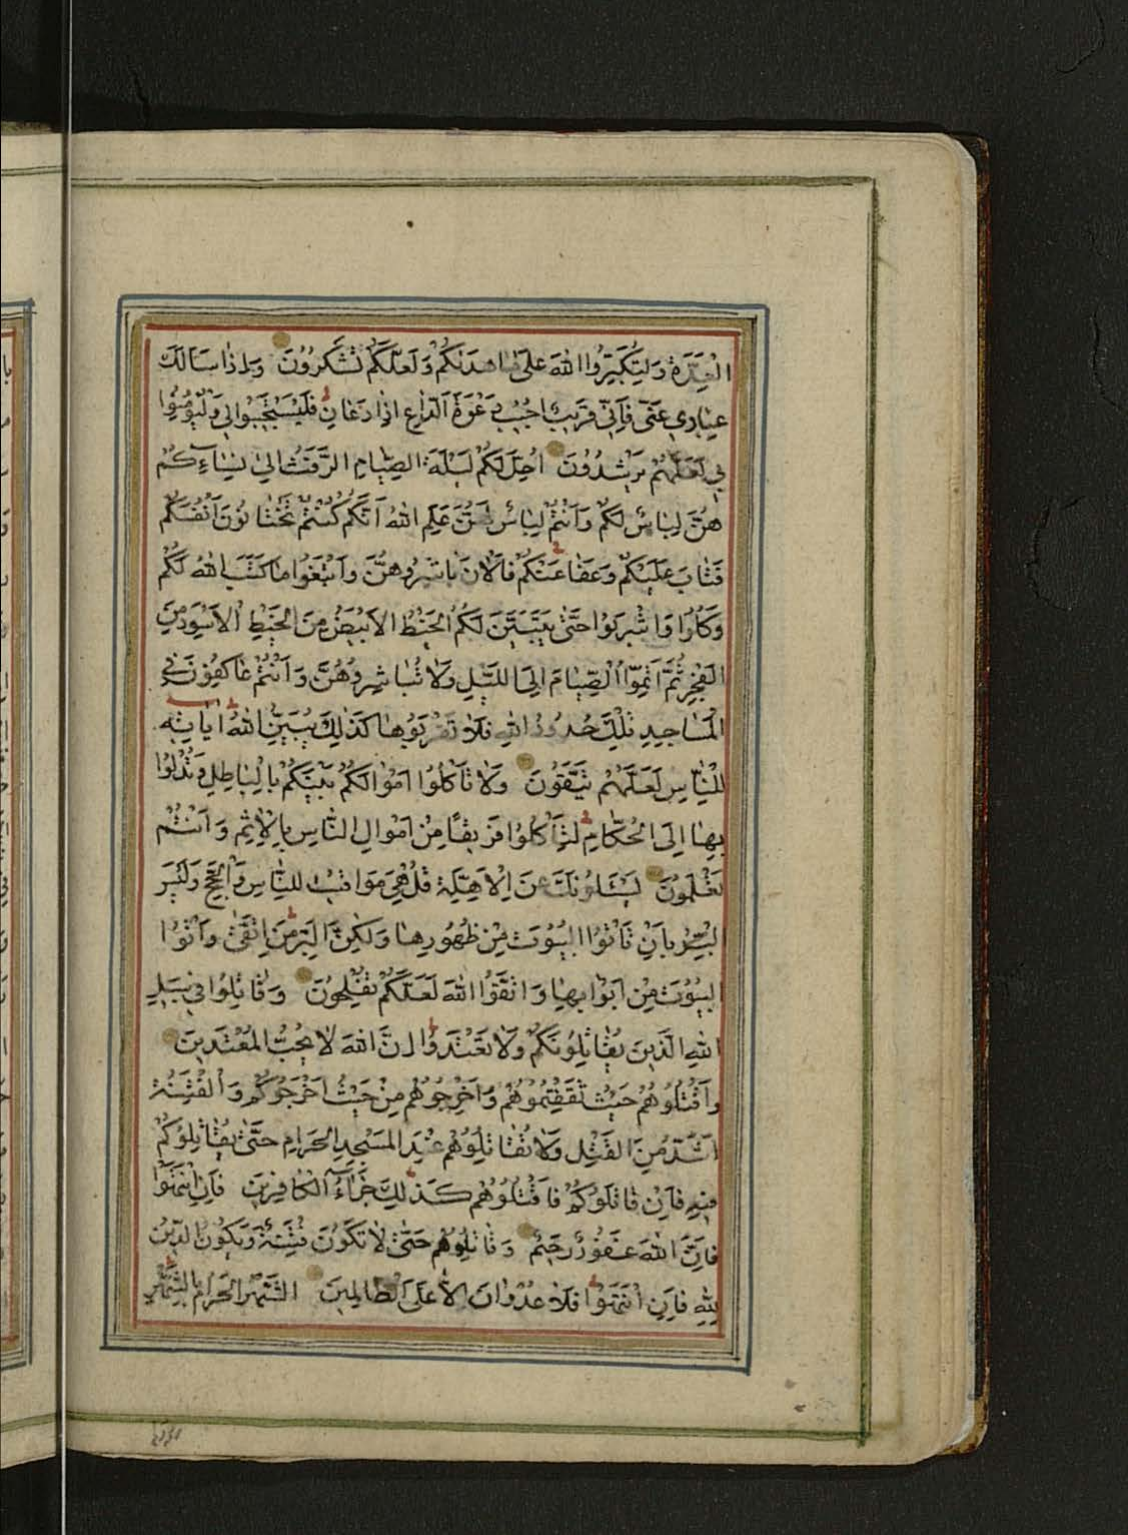 الْعِدَّةَ وَلِتُكَبِّرُوا اللهَ عَلَىٰ مَا هَدَيٰكُمْ وَلَعَلَّكُمْ تَشْكُرُونَ وَاِذَا سَاَلَكَ
عِبَادِي عَنِّي فَاِنِّي قَرِيبٌ اُجِيبُ دَعْوَةَ الدَّاعِ اِذَا دَعَانِ فَلْيَسْتَجِيبُوا لِي وَلْيُؤْمِنُوا
بِي لَعَلَّهُمْ يَرْشُدُونَ اُحِلَّ لَكُمْ لَيْلَةَ الصِّيَامِ الرَّفَثُ اِلَىٰ نِسَآءِكُمْ
هُنَّ لِبَاسٌ لَكُمْ وَاَنْتُمْ لِبَاسٌ لَهُنَّ عَلِمَ اللهُ اَنَّكُمْ كُنْتُمْ تَخْتَانُونَ اَنْفُسَكُمْ
فَتَابَ عَلَيْكُمْ وَعَفَا عَنْكُمْ فَالْاٰنَ بَاشِرُوهُنَّ وَابْتَغُوا مَا كَتَبَ اللهُ لَكُمْ
وَكُلُوا وَاشْرَبُوا حَتَّىٰ يَتَبَيَّنَ لَكُمُ الْخَيْطُ الْاَبْيَضُ مِنَ الْخَيْطِ الْاَسْوَدِ مِنَ
الْفَجْرِ ثُمَّ اَتِمُّوا الصِّيَامَ اِلَى اللَّيْلِ وَلَا تُبَاشِرُوهُنَّ وَاَنْتُمْ عَاكِفُونَ فِي
الْمَسَاجِدِ تِلْكَ حُدُودُ اللهِ فَلَا تَقْرَبُوهَا كَذٰلِكَ يُبَيِّنُ اللهُ اٰيَاتِهِ
لِلنَّاسِ لَعَلَّهُمْ يَتَّقُونَ وَلَا تَاْكُلُوا اَمْوَالَكُمْ بَيْنَكُمْ بِالْبَاطِلِ وَتُدْلُوا
بِهَا اِلَى الْحُكَّامِ لِتَاْكُلُوا فَرِيقًا مِنْ اَمْوَالِ النَّاسِ بِالْاِثْمِ وَاَنْتُمْ
تَعْلَمُونَ يَسْئَلُونَكَ عَنِ الْاَهِلَّةِ قُلْ هِيَ مَوَاقِيتُ لِلنَّاسِ وَالْحَجِّ وَلَيْسَ
الْبِرُّ بِاَنْ تَاْتُوا الْبُيُوتَ مِنْ ظُهُورِهَا وَلٰكِنَّ الْبِرَّ مَنِ اتَّقَىٰ وَاْتُوا
الْبُيُوتَ مِنْ اَبْوَابِهَا وَاتَّقُوا اللهَ لَعَلَّكُمْ تُفْلِحُونَ وَقَاتِلُوا فِي سَبِيلِ
اللهِ الَّذِينَ يُقَاتِلُونَكُمْ وَلَا تَعْتَدُوا اِنَّ اللهَ لَا يُحِبُّ الْمُعْتَدِينَ
وَاقْتُلُوهُمْ حَيْثُ ثَقِفْتُمُوهُمْ وَاَخْرِجُوهُمْ مِنْ حَيْثُ اَخْرَجُوكُمْ وَالْفِتْنَةُ
اَشَدُّ مِنَ الْقَتْلِ وَلَا تُقَاتِلُوهُمْ عِنْدَ الْمَسْجِدِ الْحَرَامِ حَتَّىٰ يُقَاتِلُوكُمْ
فِيهِ فَاِنْ قَاتَلُوكُمْ فَاقْتُلُوهُمْ كَذٰلِكَ جَزَآءُ الْكَافِرِينَ فَاِنِ انْتَهَوْا
فَاِنَّ اللهَ غَفُورٌ رَحِيمٌ وَقَاتِلُوهُمْ حَتَّىٰ لَا تَكُونَ فِتْنَةٌ وَيَكُونَ الدِّينُ
لِلّٰهِ فَاِنِ انْتَهَوْا فَلَا عُدْوَانَ اِلَّا عَلَى الظَّالِمِينَ الشَّهْرُ الْحَرَامُ بِالشَّهْرِ